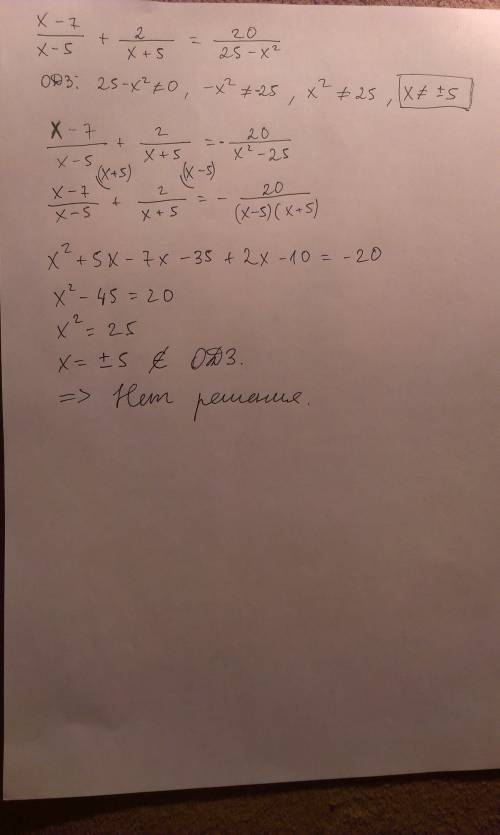 x-7/x-5 + 2/x+5 = 20/25-x²
ОДЗ: 25-x²≠0, -x²≠-25, x²≠25, x≠±5
x-7/x-5 + 2/x+5 = -20/x²-25
x-7/x-5 (x+5) + 2/x+5 (x-5) = - 20/(x-5)(x+5)
x²+5x-7x-35+2x-10=-20
x²-45=20
x²=25
x=±5 ∉ ОДЗ.
=> Нет решения.